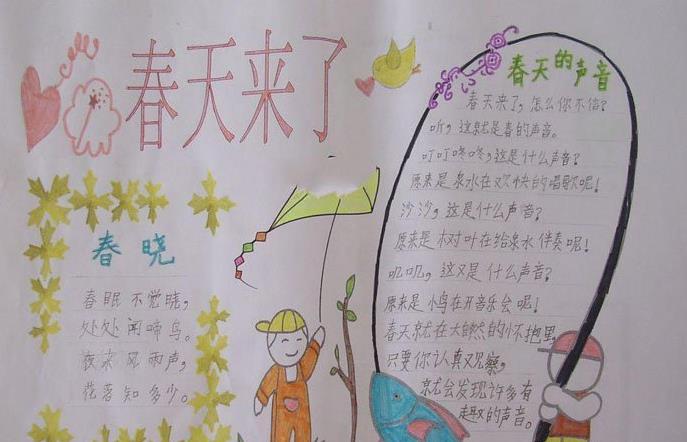 春天来了
春晓
春眠不觉晓，
处处闻啼鸟。
夜来风雨声，
花落知多少。
春天的声音
春天来了，怎么你不信？
听，这就是春的声音。
叮叮咚咚，这是什么声音？
原来是泉水在欢快的唱歌呢！
沙沙，这是什么声音？
原来是树叶在给泉水伴奏呢！
叽叽，这又是什么声音？
原来是小鸟在开音乐会呢！
春天就在大自然的怀抱里，
只要你认真观察，
就会发现许多有
趣的声音。